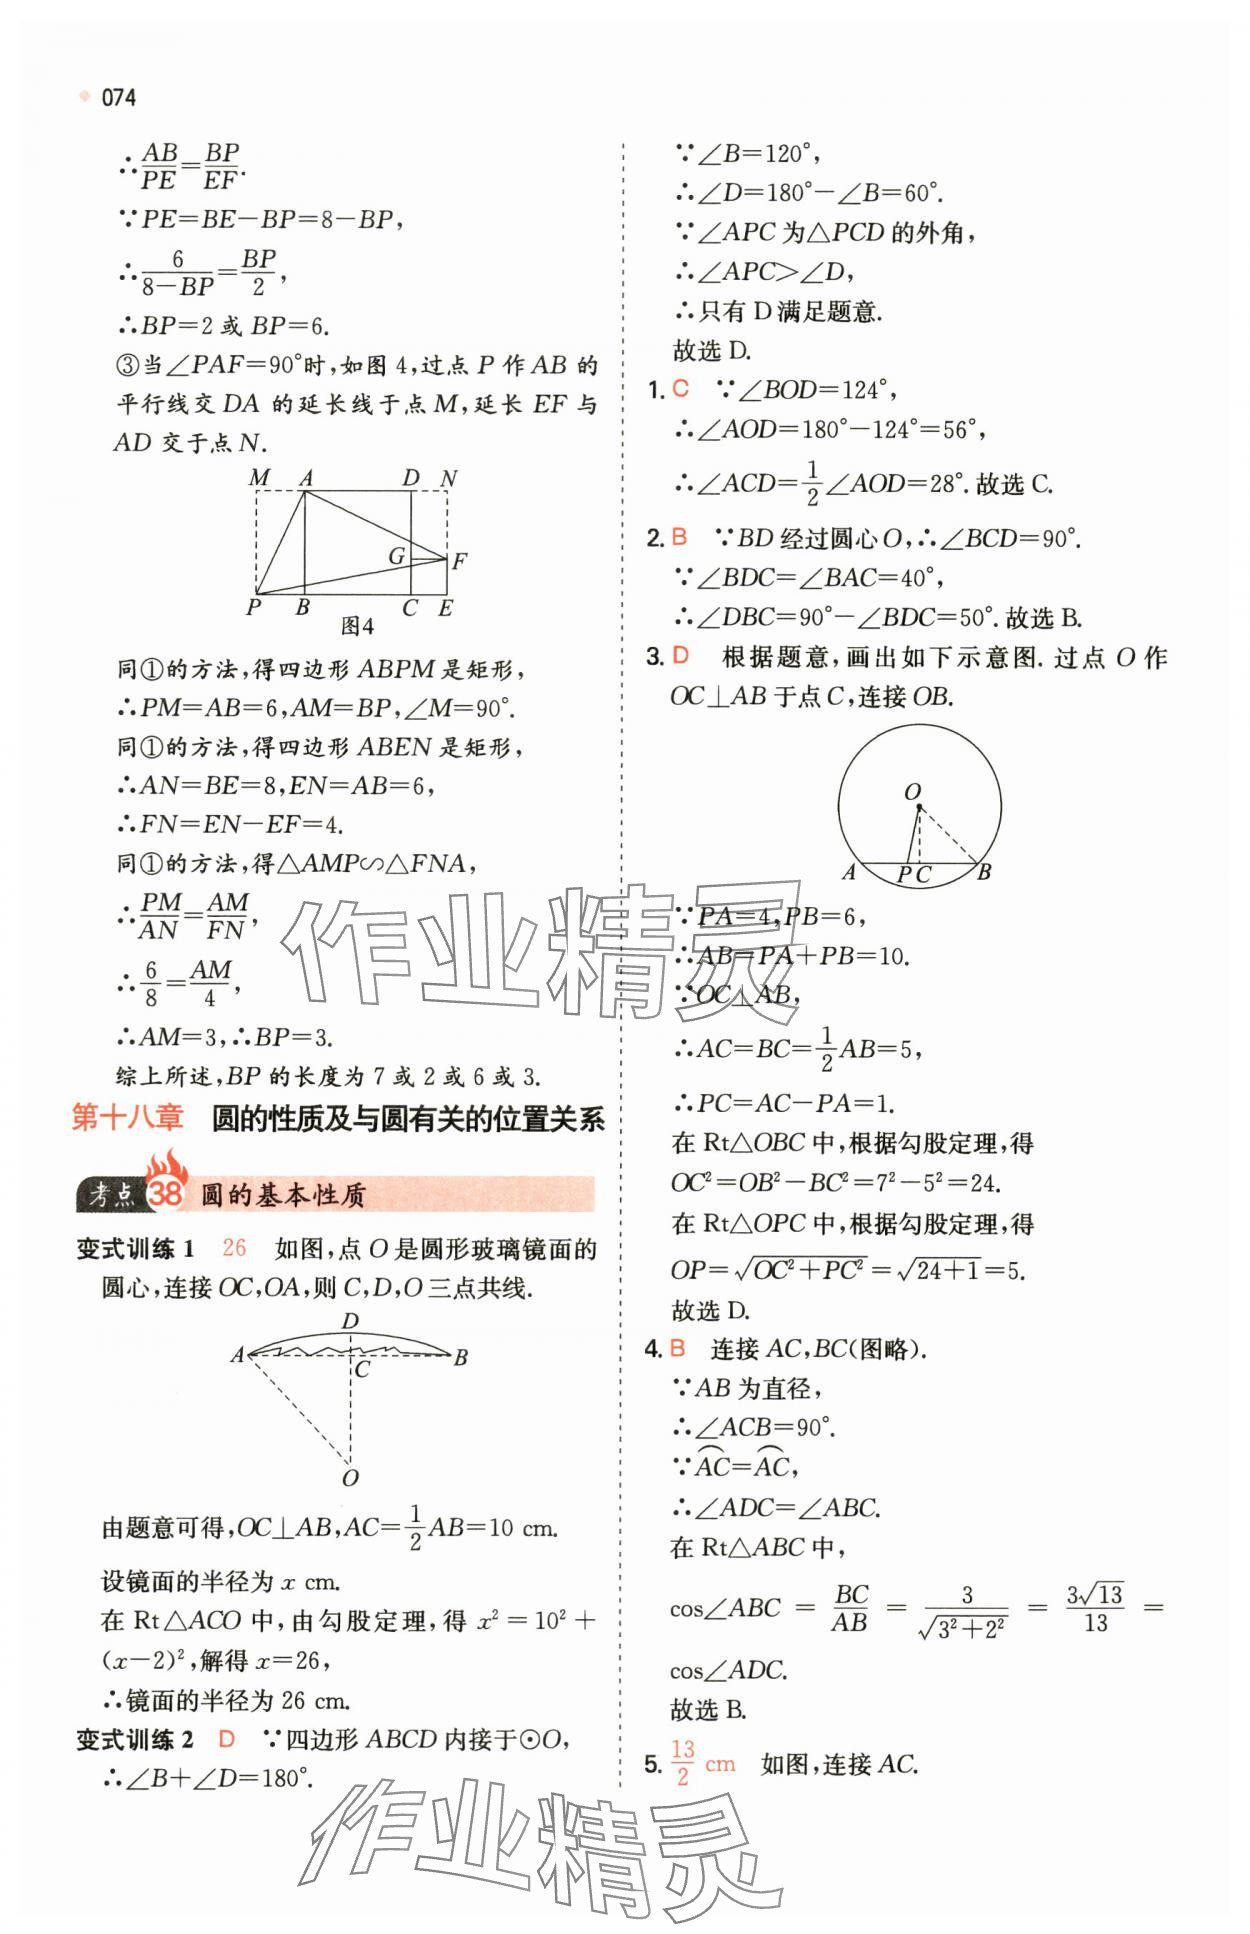 074
∴AB/PE=BP/EF.
∵PE=BE-BP=8-BP,
∴6/(8-BP)=BP/2,
∴BP=2或BP=6.
③当∠PAF=90°时,如图4,过点P作AB的
平行线交DA的延长线于点M,延长EF与
AD交于点N.
M A D N
G F
P B C E
图4
同①的方法,得四边形ABPM是矩形,
∴PM=AB=6,AM=BP,∠M=90°.
同①的方法,得四边形ABEN是矩形,
∴AN=BE=8,EN=AB=6,
∴FN=EN-EF=4.
同①的方法,得△AMP∽△FNA,
∴PM/AN=AM/FN,
∴6/8=AM/4,
∴AM=3,∴BP=3.
综上所述,BP的长度为7或2或6或3.
第十八章 圆的性质及与圆有关的位置关系
考点38 圆的基本性质
变式训练1 26 如图,点O是圆形玻璃镜面的
圆心,连接OC,OA,则C,D,O三点共线.
D
A C B
O
由题意可得,OC⊥AB,AC=1/2AB=10 cm.
设镜面的半径为x cm.
在Rt△ACO中,由勾股定理,得x²=10²+
(x-2)²,解得x=26,
∴镜面的半径为26 cm.
变式训练2 D ∵四边形ABCD内接于⊙O,
∴∠B+∠D=180°.
∵∠B=120°,
∴∠D=180°-∠B=60°.
∵∠APC为△PCD的外角,
∴∠APC>∠D,
∴只有D满足题意.
故选D.
1. C ∵∠BOD=124°,
∴∠AOD=180°-124°=56°,
∴∠ACD=1/2∠AOD=28°.故选C.
2. B ∵BD经过圆心O,∴∠BCD=90°.
∵∠BDC=∠BAC=40°,
∴∠DBC=90°-∠BDC=50°.故选B.
3. D 根据题意,画出如下示意图.过点O作
OC⊥AB于点C,连接OB.
O
A P C B
∵PA=4,PB=6,
∴AB=PA+PB=10.
∵OC⊥AB,
∴AC=BC=1/2AB=5,
∴PC=AC-PA=1.
在Rt△OBC中,根据勾股定理,得
OC²=OB²-BC²=7²-5²=24.
在Rt△OPC中,根据勾股定理,得
OP=√(OC²+PC²)=√(24+1)=5.
故选D.
4. B 连接AC,BC(图略).
∵AB为直径,
∴∠ACB=90°.
∵A͡C=A͡C,
∴∠ADC=∠ABC.
在Rt△ABC中,
cos∠ABC=BC/AB=3/√(3²+2²)=3√13/13=
cos∠ADC.
故选B.
5. 13/2 cm 如图,连接AC.
作业精灵
作业精灵